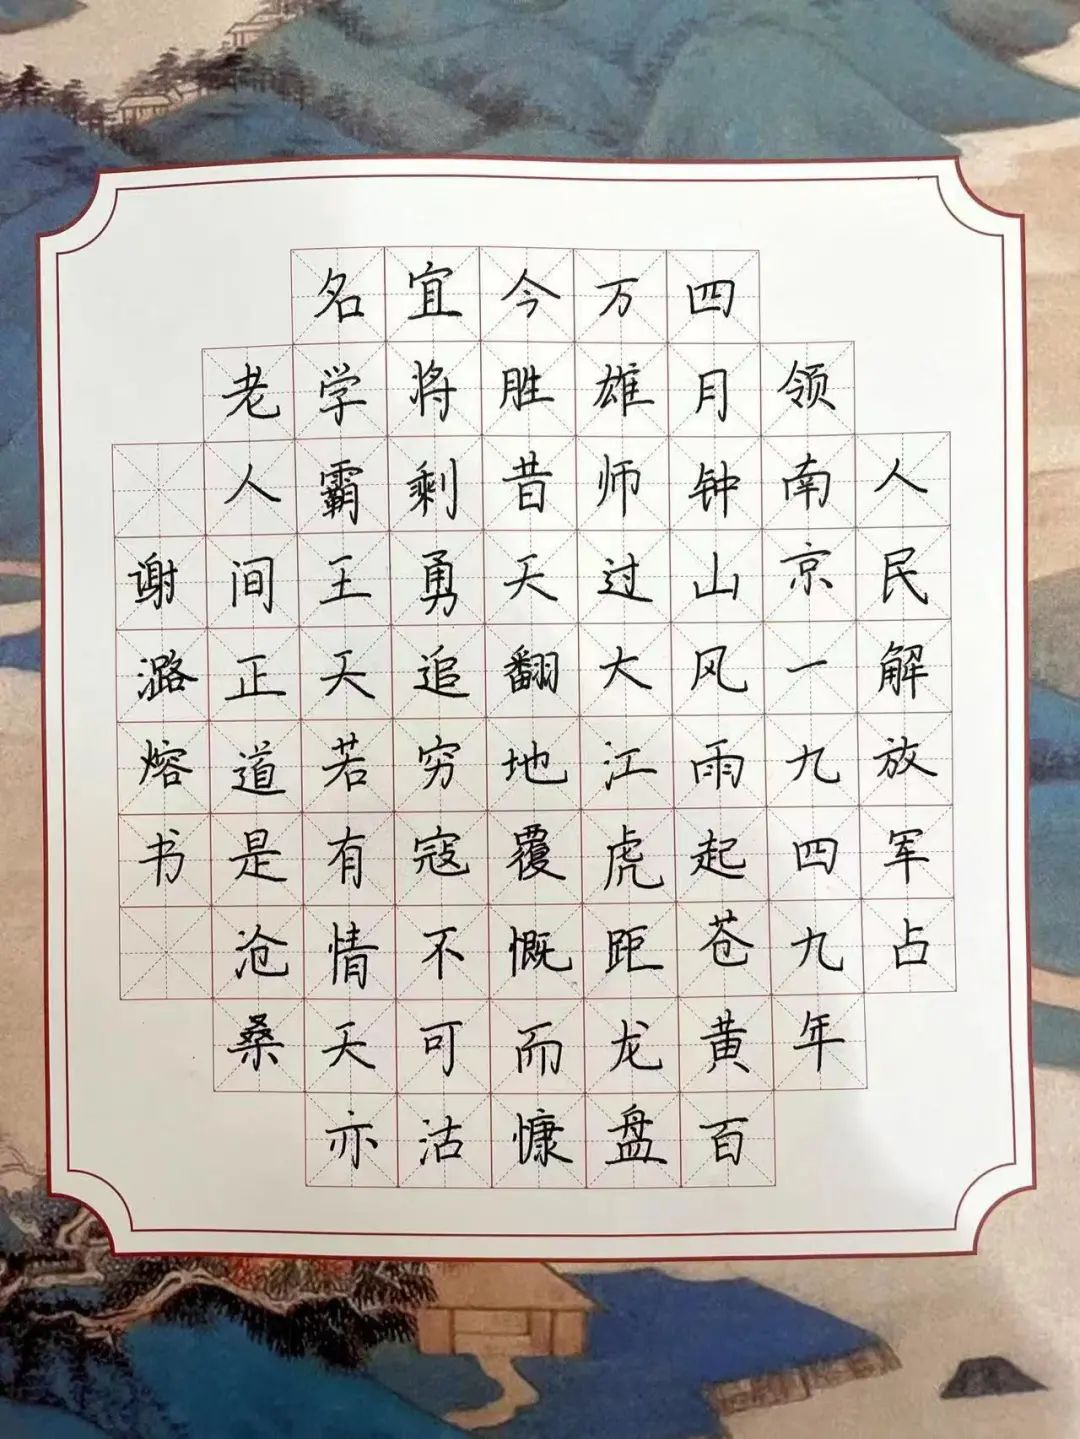 人民解放军占
领南京一九四九年
四月钟山风雨起苍黄百
万雄师过大江虎距龙盘
今胜昔天翻地覆慨而慷
宜将剩勇追穷寇不可沽
名学霸王天若有情天亦
老人间正道是沧桑
谢潞熔书